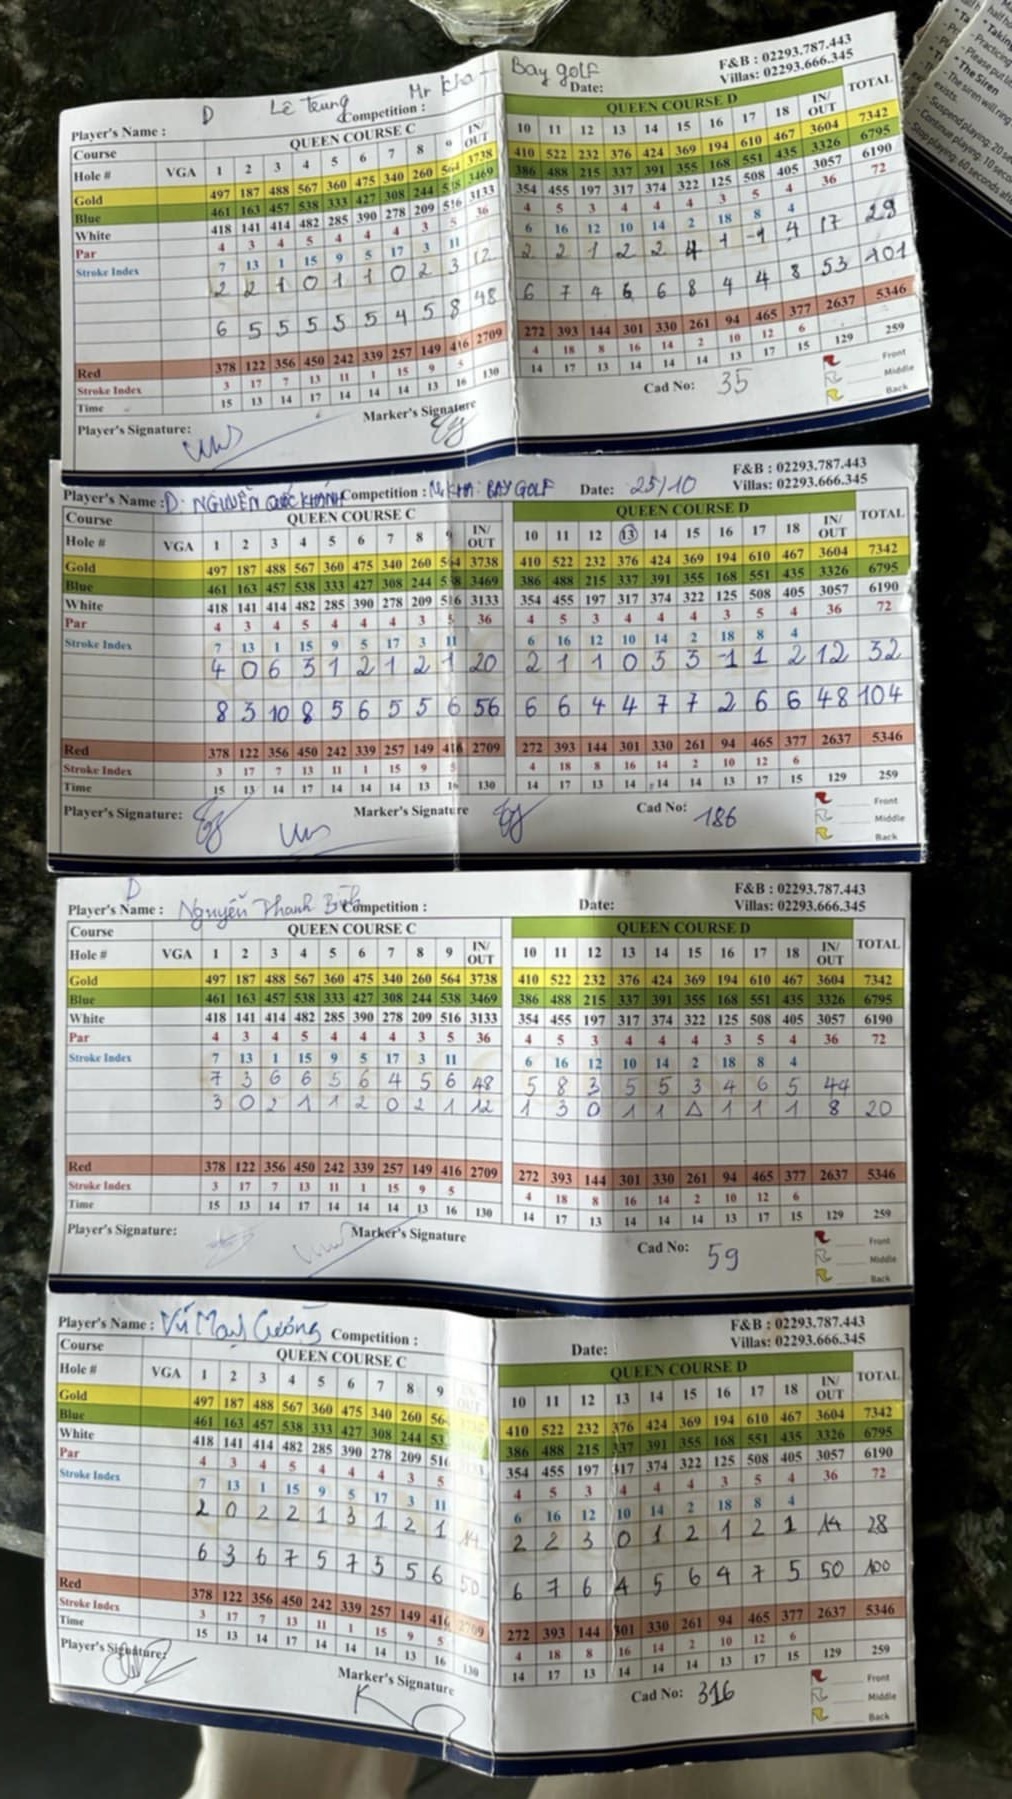 F&B : 02293.787.443
Villas: 02293.666.345
Player's Name : D Lê Trung Competition : Mr Kha - Bay golf Date:
QUEEN COURSE C QUEEN COURSE D
Course
Hole # VGA 1 2 3 4 5 6 7 8 9 IN/OUT 10 11 12 13 14 15 16 17 18 IN/OUT TOTAL
Gold 497 187 488 567 360 475 340 260 564 3738 410 522 232 376 424 369 194 610 467 3604 7342
Blue 461 163 457 538 333 427 308 244 538 3469 386 488 215 337 391 355 168 551 435 3326 6795
White 418 141 414 482 285 390 278 209 516 3133 354 455 197 317 374 322 125 508 405 3057 6190
Par 4 3 4 5 4 4 4 3 5 36 4 5 3 4 4 4 3 5 4 36 72
Stroke Index 7 13 1 15 9 5 17 3 11 6 16 12 10 14 2 18 8 4
2 2 1 0 1 1 0 2 3 12 2 2 1 2 2 4 1 -1 4 17 29
6 5 5 5 5 5 4 5 8 48 6 7 4 6 6 8 4 4 8 53 101
Red 378 122 356 450 242 339 257 149 416 2709 272 393 144 301 330 261 94 465 377 2637 5346
Stroke Index 3 17 7 13 11 1 15 9 5 4 18 8 16 14 2 10 12 6
Time 15 13 14 17 14 14 14 13 16 130 14 17 13 14 14 14 13 17 15 129 259
Player's Signature: Marker's Signature Cad No: 35
Front
Middle
Back
F&B : 02293.787.443
Villas: 02293.666.345
Player's Name : D: NGUYỄN QUỐC KHÁNH Competition : Mr KHA: BAY GOLF Date: 25/10
Course QUEEN COURSE C QUEEN COURSE D
Hole # VGA 1 2 3 4 5 6 7 8 9 IN/OUT 10 11 12 13 14 15 16 17 18 IN/OUT TOTAL
Gold 497 187 488 567 360 475 340 260 564 3738 410 522 232 376 424 369 194 610 467 3604 7342
Blue 461 163 457 538 333 427 308 244 538 3469 386 488 215 337 391 355 168 551 435 3326 6795
White 418 141 414 482 285 390 278 209 516 3133 354 455 197 317 374 322 125 508 405 3057 6190
Par 4 3 4 5 4 4 4 3 5 36 4 5 3 4 4 4 3 5 4 36 72
Stroke Index 7 13 1 15 9 5 17 3 11 6 16 12 10 14 2 18 8 4
4 0 6 3 1 2 1 2 1 20 2 1 1 0 3 3 -1 1 2 12 32
8 3 10 8 5 6 5 5 6 56 6 6 4 4 7 7 2 6 6 48 104
Red 378 122 356 450 242 339 257 149 416 2709 272 393 144 301 330 261 94 465 377 2637 5346
Stroke Index 3 17 7 13 11 1 15 9 5 4 18 8 16 14 2 10 12 6
Time 15 13 14 17 14 14 14 13 16 130 14 17 13 14 14 14 13 17 15 129 259
Player's Signature: Marker's Signature Cad No: 186
Front
Middle
Back
F&B : 02293.787.443
Villas: 02293.666.345
Player's Name : D Nguyễn Thanh Bình Competition : Date:
Course QUEEN COURSE C QUEEN COURSE D
Hole # VGA 1 2 3 4 5 6 7 8 9 IN/OUT 10 11 12 13 14 15 16 17 18 IN/OUT TOTAL
Gold 497 187 488 567 360 475 340 260 564 3738 410 522 232 376 424 369 194 610 467 3604 7342
Blue 461 163 457 538 333 427 308 244 538 3469 386 488 215 337 391 355 168 551 435 3326 6795
White 418 141 414 482 285 390 278 209 516 3133 354 455 197 317 374 322 125 508 405 3057 6190
Par 4 3 4 5 4 4 4 3 5 36 4 5 3 4 4 4 3 5 4 36 72
Stroke Index 7 13 1 15 9 5 17 3 11 6 16 12 10 14 2 18 8 4
7 3 6 6 5 6 4 5 6 48 5 8 3 5 5 3 4 6 5 44
3 0 2 1 1 2 0 2 1 12 1 3 0 1 1 Δ 1 1 1 8 20
Red 378 122 356 450 242 339 257 149 416 2709 272 393 144 301 330 261 94 465 377 2637 5346
Stroke Index 3 17 7 13 11 1 15 9 5 4 18 8 16 14 2 10 12 6
Time 15 13 14 17 14 14 14 13 16 130 14 17 13 14 14 14 13 17 15 129 259
Player's Signature: Marker's Signature Cad No: 59
Front
Middle
Back
F&B : 02293.787.443
Villas: 02293.666.345
Player's Name : Vũ Mạnh Cường Competition : Date:
Course QUEEN COURSE C QUEEN COURSE D
Hole # VGA 1 2 3 4 5 6 7 8 9 10 11 12 13 14 15 16 17 18 IN/OUT TOTAL
Gold 497 187 488 567 360 475 340 260 56 410 522 232 376 424 369 194 610 467 3604 7342
Blue 461 163 457 538 333 427 308 244 53 386 488 215 337 391 355 168 551 435 3326 6795
White 418 141 414 482 285 390 278 209 516 354 455 197 317 374 322 125 508 405 3057 6190
Par 4 3 4 5 4 4 4 3 5 4 5 3 4 4 4 3 5 4 36 72
Stroke Index 7 13 1 15 9 5 17 3 11 6 16 12 10 14 2 18 8 4
2 0 2 2 1 3 1 2 1 14 2 2 3 0 1 2 1 2 1 14 28
6 3 6 7 5 7 5 5 6 50 6 7 6 4 5 6 4 7 5 50 100
Red 378 122 356 450 242 339 257 149 416 2709 272 393 144 301 330 261 94 465 377 2637 5346
Stroke Index 3 17 7 13 11 1 15 9 5 4 18 8 16 14 2 10 12 6
Time 15 13 14 17 14 14 14 13 16 130 14 17 13 14 14 14 13 17 15 129 259
Player's Signature: Marker's Signature Cad No: 316
Front
Middle
Back